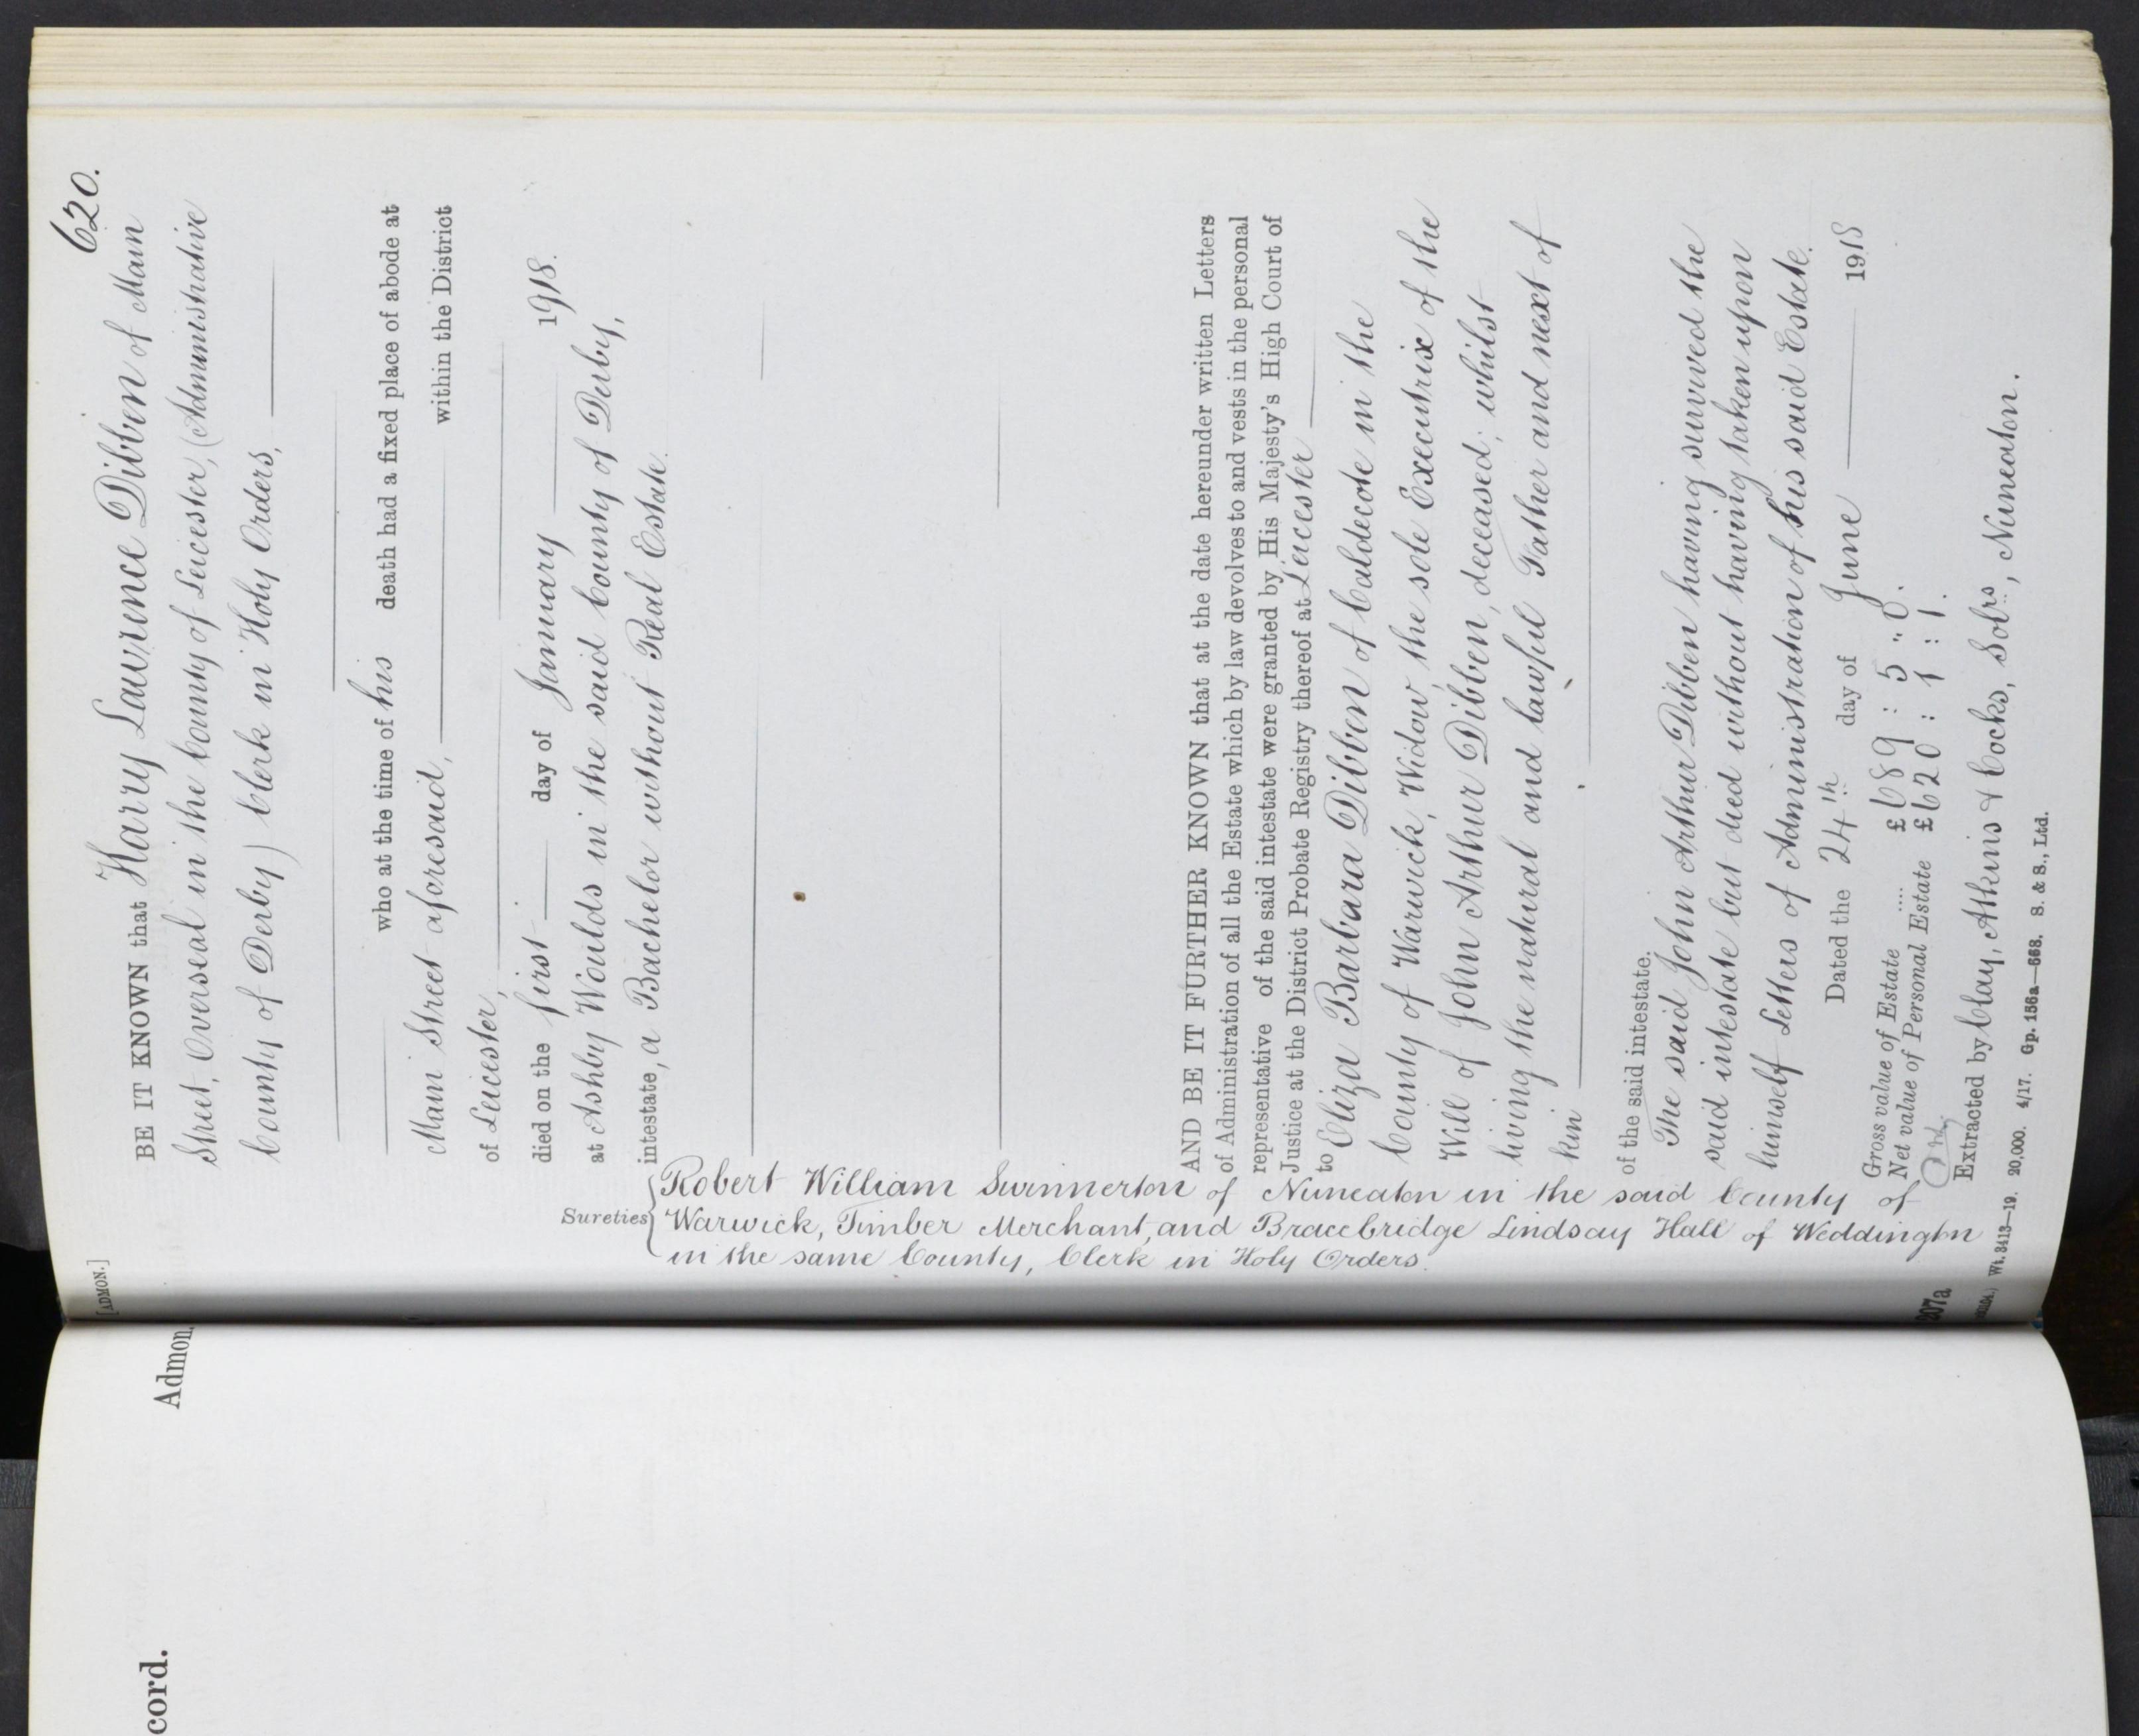 620.
[ADMON.]
BE IT KNOWN that Harry Lawrence Dibben of Main
Street, Overseal in the County of Leicester, (Administrative
County of Derby) Clerk in Holy Orders,
who at the time of his death had a fixed place of abode at
Main Street aforesaid, within the District
of Leicester,
died on the first day of January 1918.
at Ashby Woulds in the said County of Derby,
intestate, a Bachelor without Real Estate.
AND BE IT FURTHER KNOWN that at the date hereunder written Letters
of Administration of all the Estate which by law devolves to and vests in the personal
representative of the said intestate were granted by His Majesty's High Court of
Justice at the District Probate Registry thereof at Leicester
to Eliza Barbara Dibben of Caldecote in the
County of Warwick, Widow, the sole Executrix of the
Will of John Arthur Dibben, deceased; whilst
living the natural and lawful Father and next of
kin
of the said intestate.
The said John Arthur Dibben having survived the
said intestate but died without having taken upon
himself Letters of Administration of his said Estate.
Dated the 24th day of June 1918
Gross value of Estate .... £689 : 5 " 0.
Net value of Personal Estate £620 : 1 : 1.
Extracted by Clay, Atkins & Cocks, Solrs, Nuneaton.
Wt. 3413—19. 20,000. 4/17. Gp. 156a—668. S. & S., Ltd.
207a
Sureties { Robert William Swinnerton of Nuneaton in the said County of
Warwick, Timber Merchant, and Bracebridge Lindsay Hall of Weddington
in the same County, Clerk in Holy Orders.
Admon.
cord.